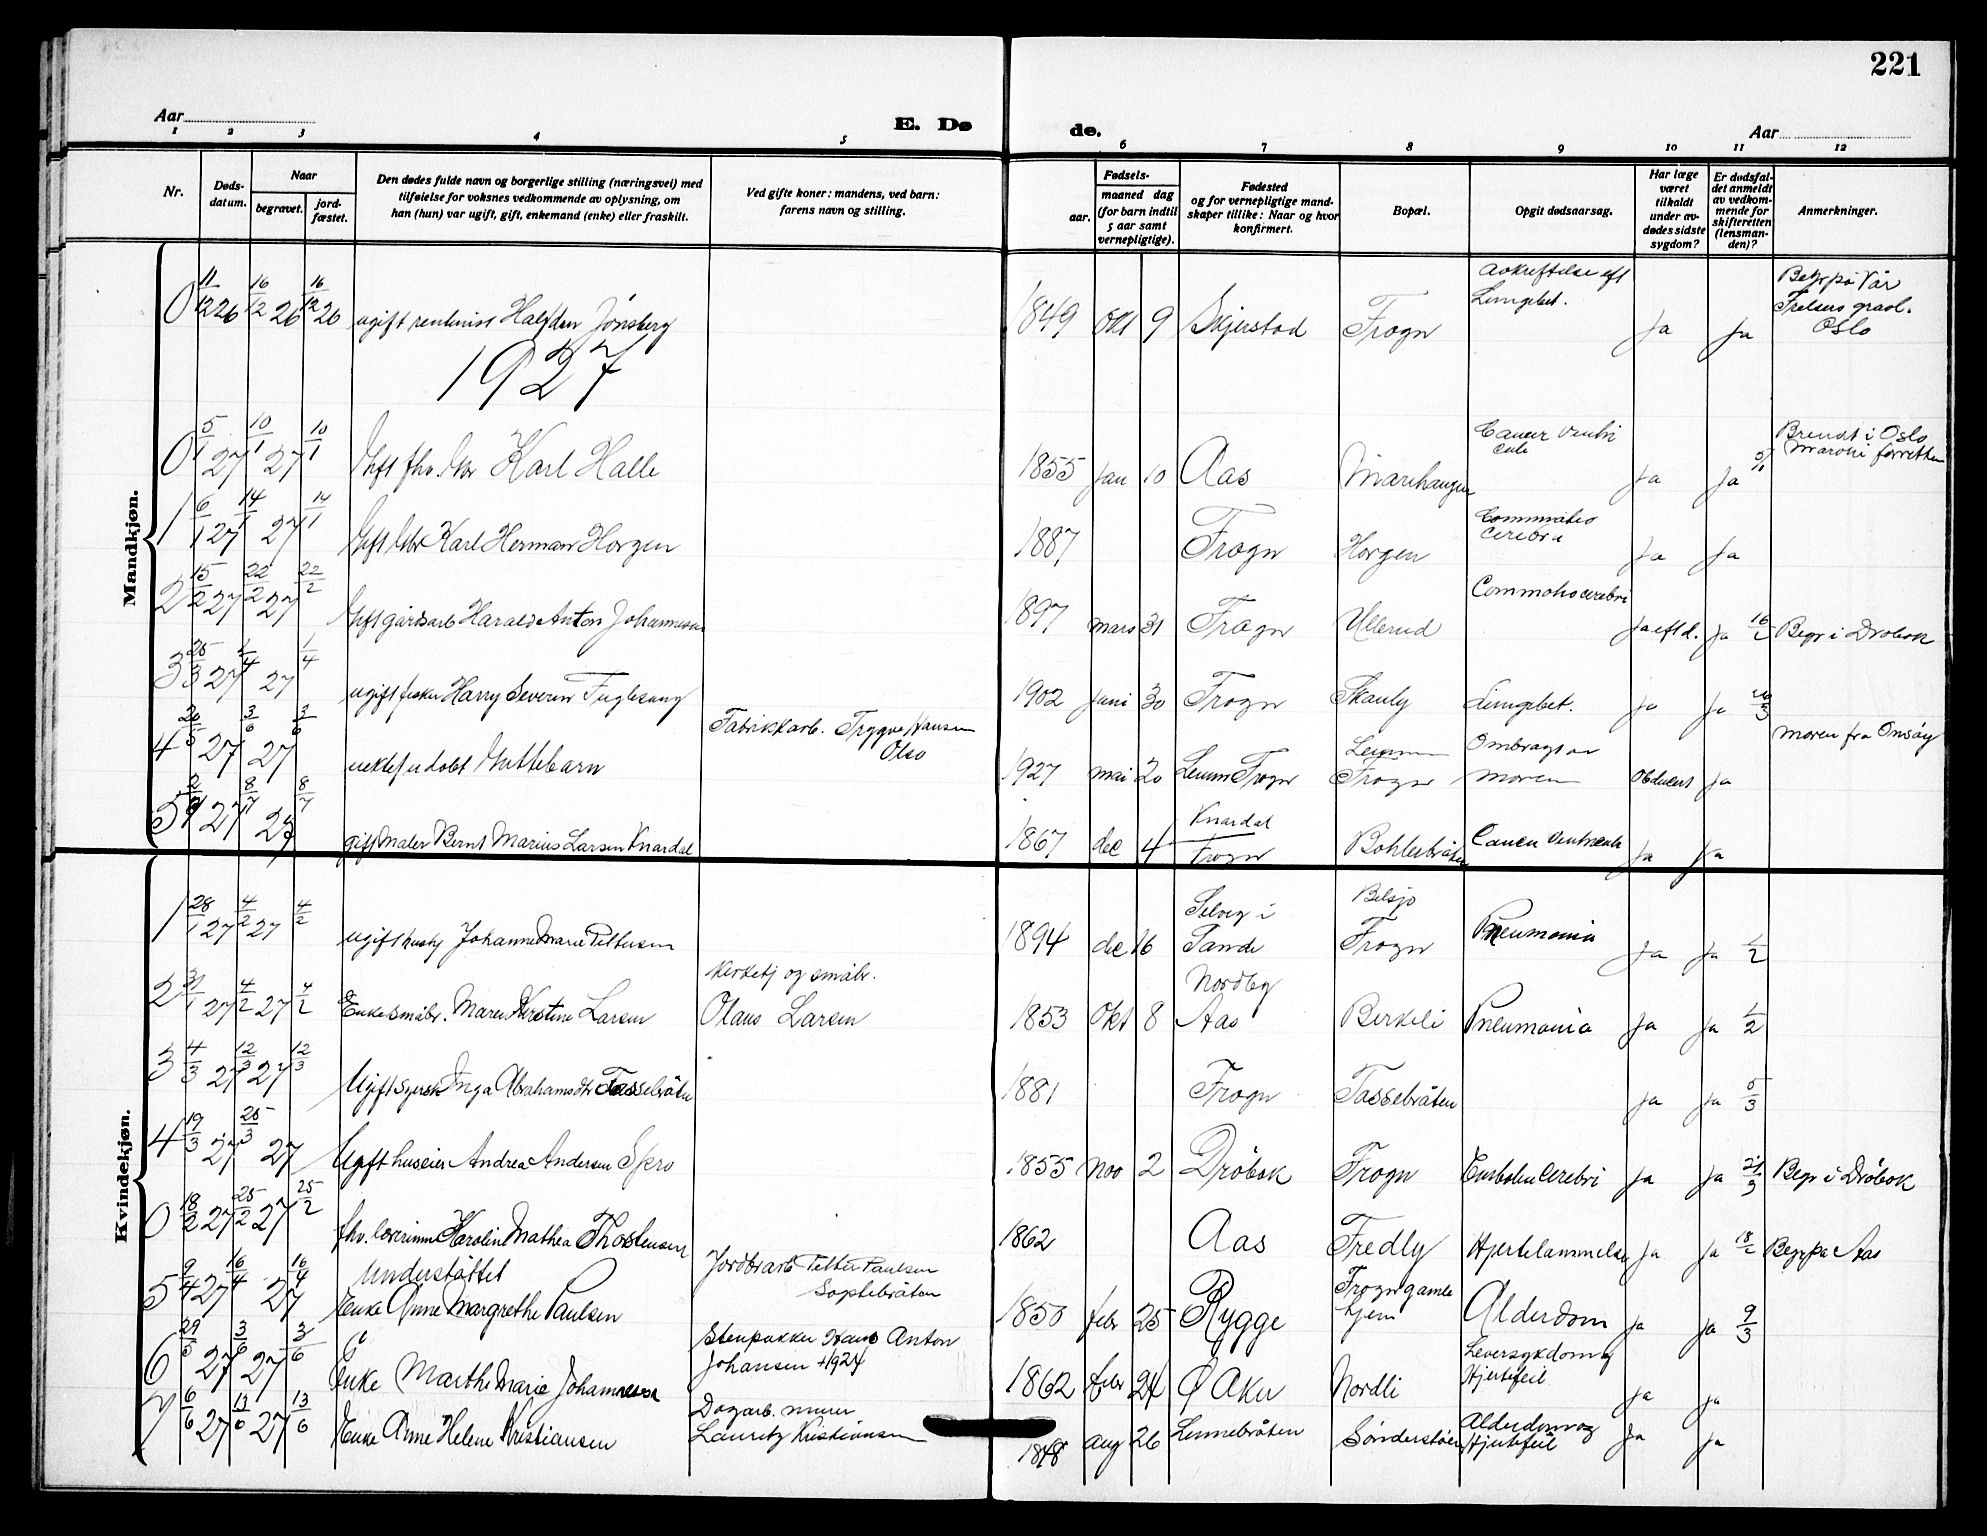 221
Aar
E. Dø
de.
Aar
1 2 3 4 5 6 7 8 9 10 11 12
Nr.
Døds-
datum.
Naar
begravet.
jord-
fæstet.
Den dødes fulde navn og borgerlige stilling (næringsvei) med
tilføielse for voksnes vedkommende av oplysning, om
han (hun) var ugift, gift, enkemand (enke) eller fraskilt.
Ved gifte koner: mandens, ved barn:
farens navn og stilling.
Fødsels-
aar.
maaned dag
(for barn indtil
5 aar samt
vernepligtige).
Fødested
og for vernepligtige mand-
skaper tillike: Naar og hvor
konfirmert.
Bopæl.
Opgit dødsaarsag.
Har læge
været
tilkaldt
under av-
dødes sidste
sygdom?
Er dødsfal-
det anmeldt
av vedkom-
mende for
skifteretten
(lensman-
den)?
Anmerkninger.
Mandkjøn.
0 11/12 26 16/12 26 16/12 26 ugift Halfdan Jønsberg 1849 Okt 9 Skjerstad Frogn Avkræftelse eft Lungebet. Ja Ja Begr på Vår Frelsers gravl. Oslo
1927
0 5/1 27 10/1 27 10/1 Gift fhv. Gbr Karl Halle 1855 Jan 10 Aas Ja Ja Brendt i Oslo
1 6/1 27 14/1 27 14/1 Gift Gbr Karl Herman Horgen 1887 Frogn Horgen Ja Ja
2 15/2 27 22/2 27 22/2 Gift gårdsarb Harald Anton Johannesen 1897 mars 31 Frogn Ullerud Commotio cerebri Ja eft d. Ja 16/2 Begr i Drøbak
3 25/3 27 1/4 27 1/4 ugift fisker Harry Severin Fuglesang 1902 juni 30 Frogn Skauly Lungebet. Ja Ja
4 20/5 27 3/6 27 3/6 uekte udøbt Guttebarn Fabrikkarb. Trygve Hansen Oslo 1927 mai 20 Frogn Frogn Ombragt av moren Obducert Ja moren fra Onsøy
5 2/7 27 8/7 27 8/7 gift Maler Bernt Marius Larsen Knardal 1867 dec 4 Knardal Frogn Bohlerbråten Ja Ja
Kvindekjøn.
1 28/1 27 4/2 27 4/2 ugift Johanne Marie Pettersen 1894 dec 16 Selvig i Sande Belsjø Frogn Pneumonia Ja Ja 1/2
2 31/1 27 4/2 27 4/2 Enke småbr. Maren Kirstine Larsen Kirketj og småbr. Olaus Larsen 1853 Okt 8 Nordby Aas Birkeli Pneumonia Ja Ja 1/2
3 4/3 27 12/3 27 12/3 Ugift Inga Abrahamsdtr Tassebråten 1881 Frogn Tassebråten Ja Ja 5/3
4 19/3 27 25/3 27 Ugift huseier Andrea Andersen 1855 Nov 2 Drøbak Frogn Emboli Cerebri Ja Ja 21/3 Begr i Drøbak
0 18/2 27 25/2 27 25/2 fhv. lærerinne Karoline Mathea Thorstensen 1862 Aas Fredly Hjertelammelse Ja Ja 18/2 Begr på Aas
5 9/4 27 16/4 27 16/4 Understøttet Enke Anne Margrethe Paulsen Jordbrarb Petter Paulsen Soplebråten 1850 febr 25 Rygge Frogn gamle hjem Alderdom Ja Ja 9/3
6 29/5 27 3/6 27 3/6 Enke Marthe Marie Johannesen Stenpukker Hans Anton Johansen +1924 1862 febr 24 Ø Aker Nordli Leversykdom og Hjertefeil Ja Ja
7 6/6 27 13/6 27 13/6 Enke Anne Helene Kristiansen Dagarb. murer Lauritz Kristiansen 1848 aug 26 Lennebråten Alderdom og Hjertefeil Ja Ja